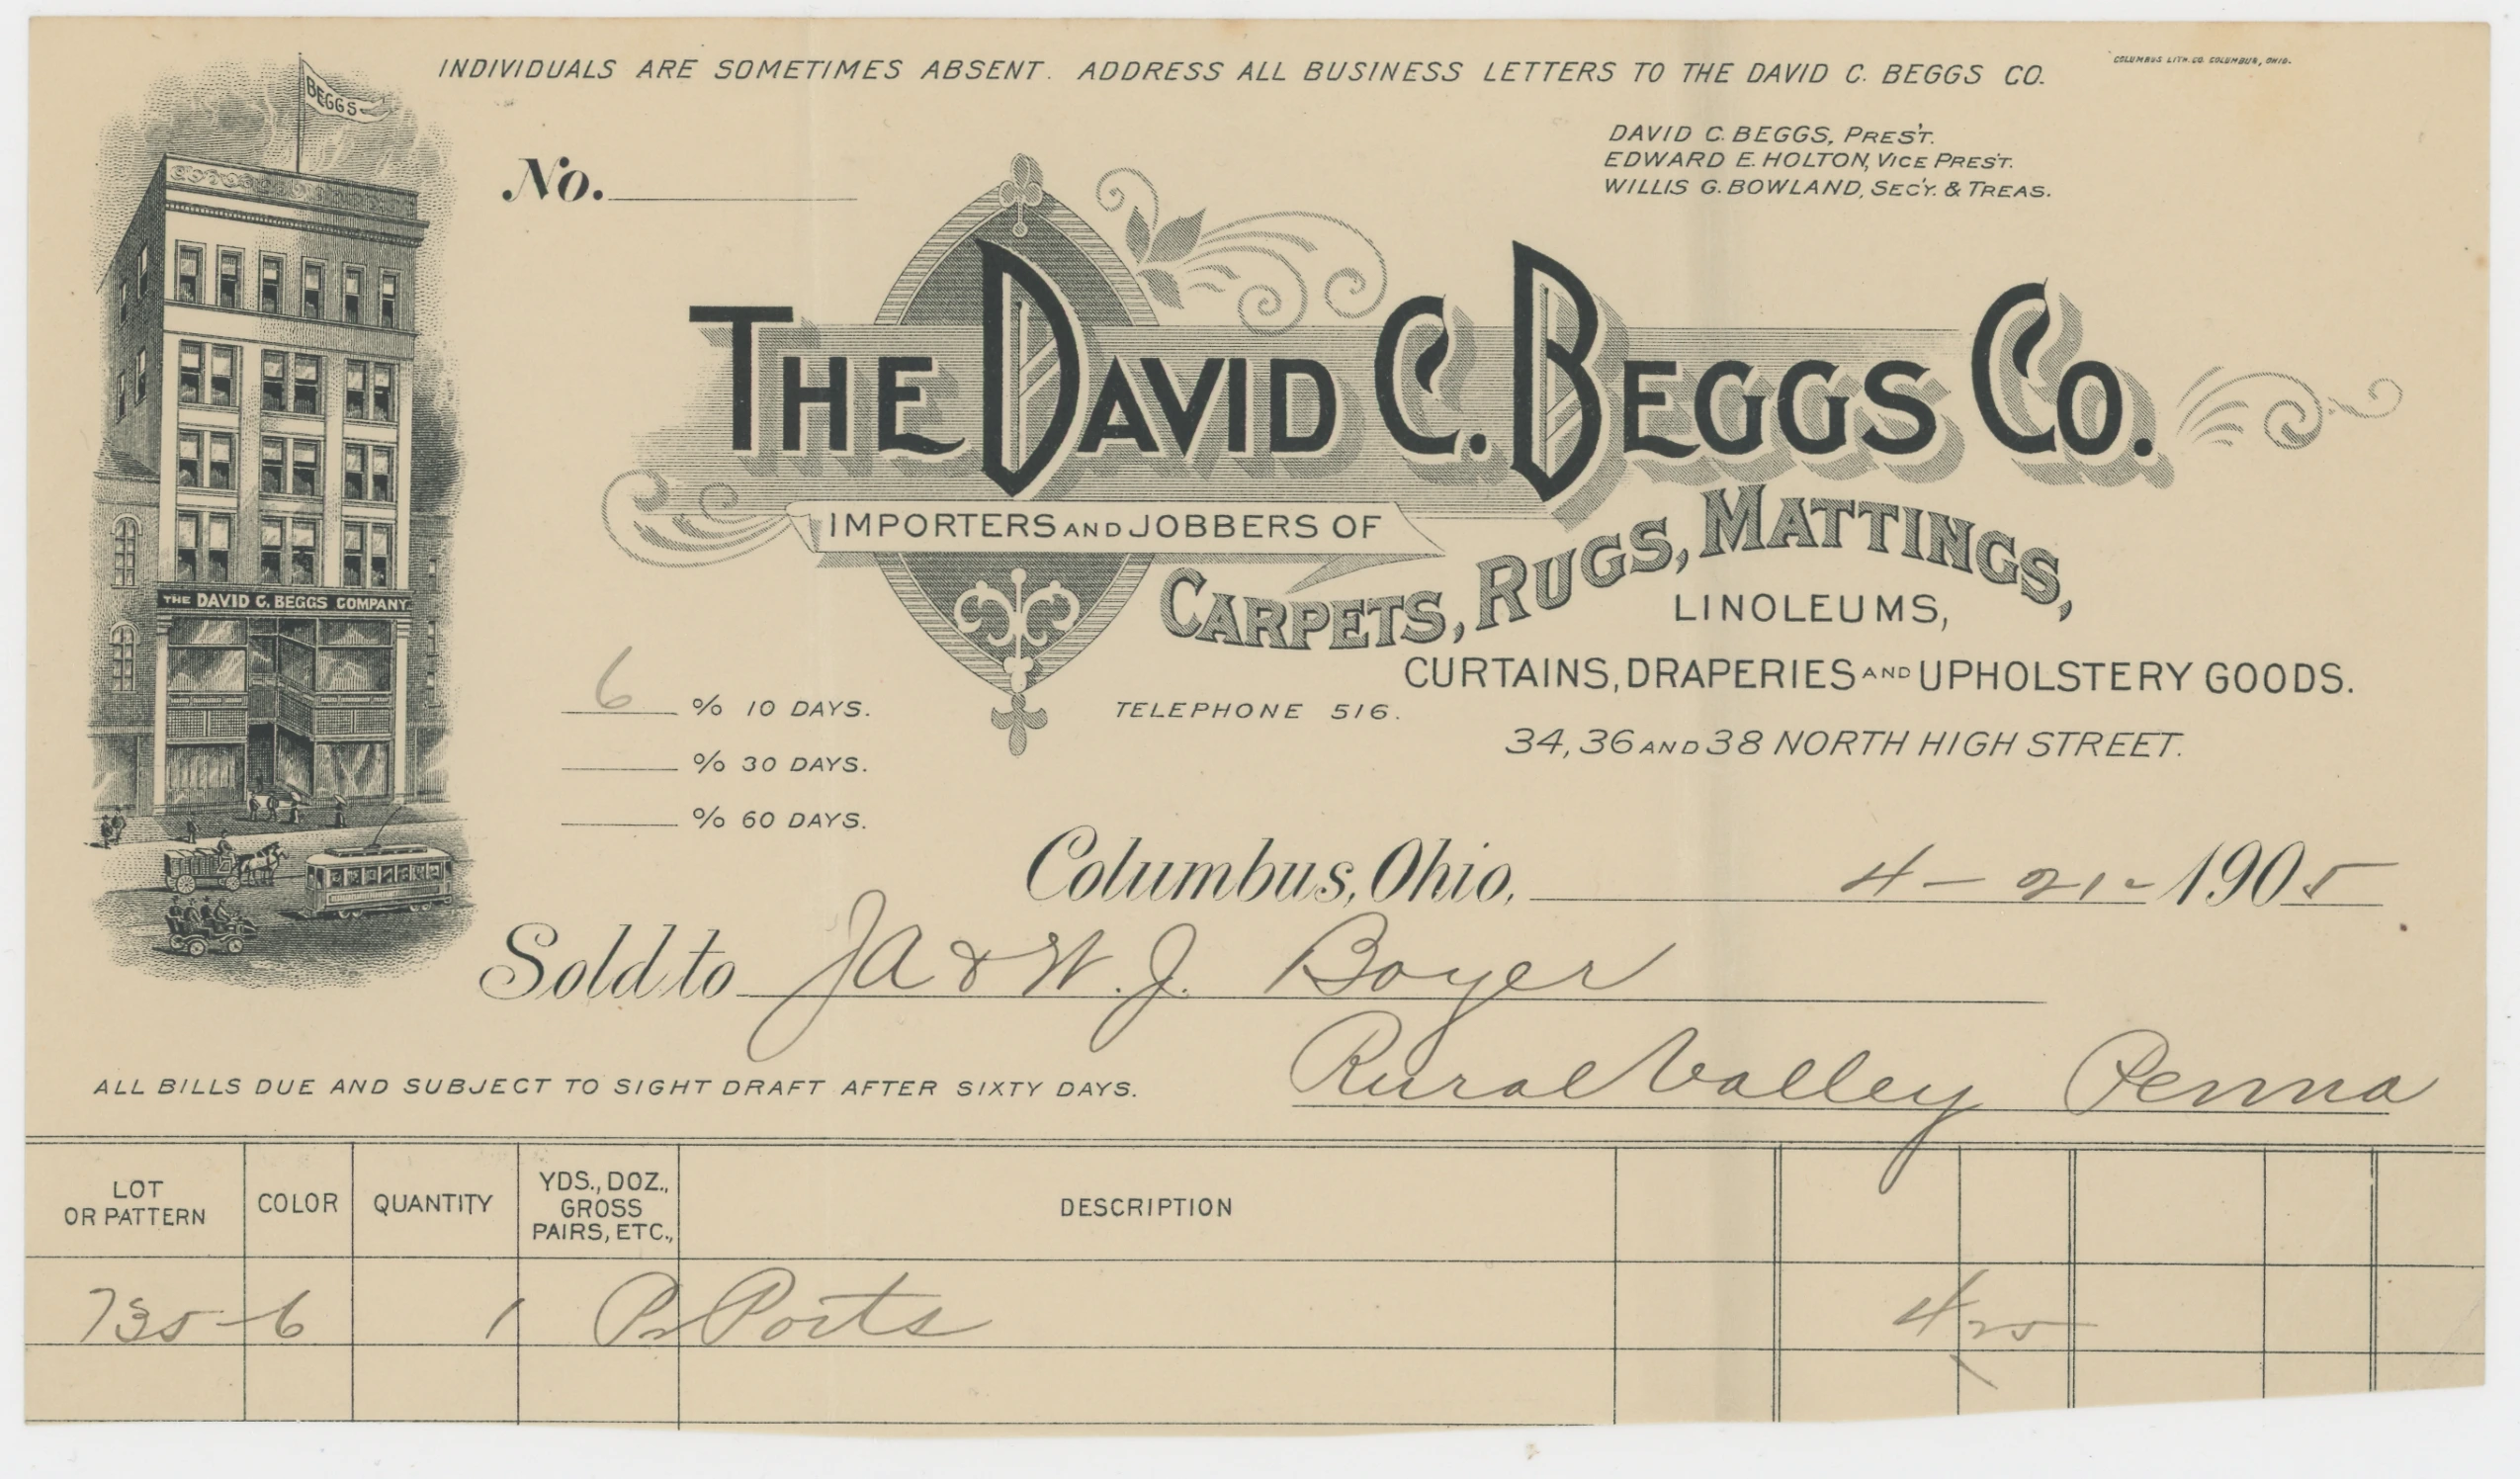 INDIVIDUALS ARE SOMETIMES ABSENT. ADDRESS ALL BUSINESS LETTERS TO THE DAVID C. BEGGS CO.
COLUMBUS LITH. CO. COLUMBUS, OHIO.
BEGGS
DAVID C. BEGGS, PRES'T.
EDWARD E. HOLTON, VICE PRES'T.
WILLIS G. BOWLAND, SEC'Y. & TREAS.
No.
THE DAVID C. BEGGS CO.
IMPORTERS AND JOBBERS OF
CARPETS, RUGS, MATTINGS,
LINOLEUMS,
CURTAINS, DRAPERIES AND UPHOLSTERY GOODS.
THE DAVID C. BEGGS COMPANY
6 % 10 DAYS.
% 30 DAYS.
% 60 DAYS.
TELEPHONE 516.
34, 36 AND 38 NORTH HIGH STREET.
Columbus, Ohio, 4-21-1905
Sold to JA & W. J. Boyer
Rural Valley Penna
ALL BILLS DUE AND SUBJECT TO SIGHT DRAFT AFTER SIXTY DAYS.
LOT OR PATTERN COLOR QUANTITY YDS., DOZ., GROSS PAIRS, ETC., DESCRIPTION
735-6 1 Pr Ports 4 25